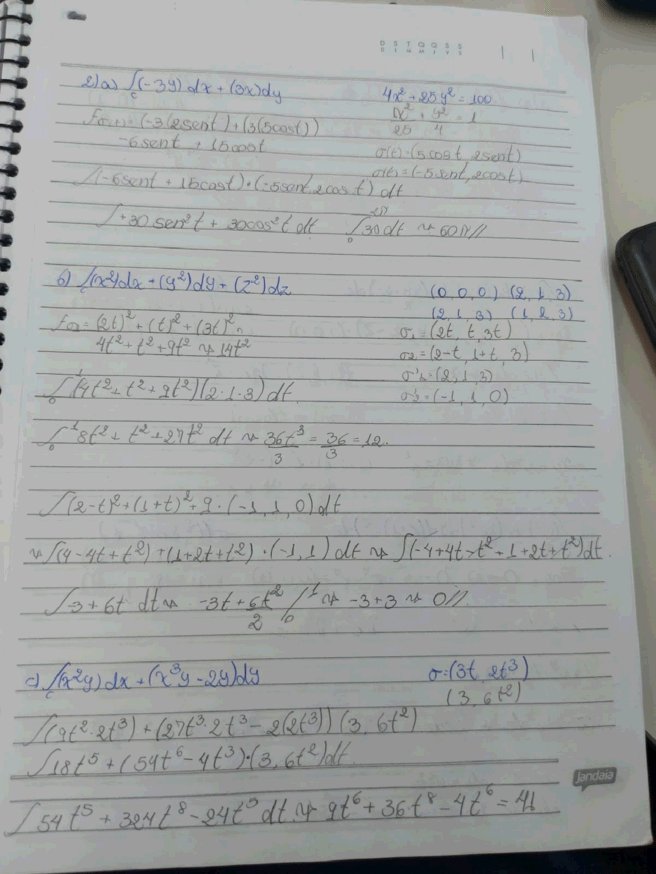 D S T Q Q S S
D L M M J V S
2)a) ∫c (-3y)dx + (3x)dy    4x² + 25y² = 100
f(σ(t)) = (-3(2sent) + (3(5cost))    x²/25 + y²/4 = 1
-6sent + 15cost    σ(t) = (5cost, 2sent)
∫(-6sent + 15cost)·(-5sent, 2cost) dt    σ'(t) = (-5sent, 2cost)
∫+30sen²t + 30cos²t dt    ∫₀^2π 30dt ~> 60π//
b) ∫c (x²)dx + (y²)dy + (z²)dz    (0,0,0) (2,1,3)
(2,1,3) (1,2,3)
= (2t)² + (t)² + (3t)²    σ₁ = (2t, t, 3t)
4t² + t² + 9t² ~> 14t²    σ₂ = (2-t, 1+t, 3)
∫₀¹ (4t² + t² + 9t²)(2·1·3) dt    σ'₁ = (2,1,3)
σ'₂ = (-1, 1, 0)
∫₀¹ 8t² + t² + 27t² dt ~> 36t³/3 = 36/3 = 12.
∫(2-t)² + (1+t)² + 9 · (-1, 1, 0) dt
~> ∫(4-4t+t²) + (1+2t+t²) · (-1, 1) dt ~> ∫(-4+4t-t²+1+2t+t²)dt
∫-3+6t dt ~> -3t + 6t²/2 /₀¹ ~> -3+3 ~> 0//.
c) ∫c (x²y)dx + (x³y-2y)dy    σ = (3t, 2t³)
(3, 6t²)
∫(9t²·2t³) + (27t³·2t³ - 2(2t³))(3, 6t²)
∫18t⁵ + (54t⁶ - 4t³)·(3, 6t²)dt
∫54t⁵ + 324t⁸ - 24t⁵ dt ~> 9t⁶ + 36t⁸ - 4t⁶ = 41
Jandaia